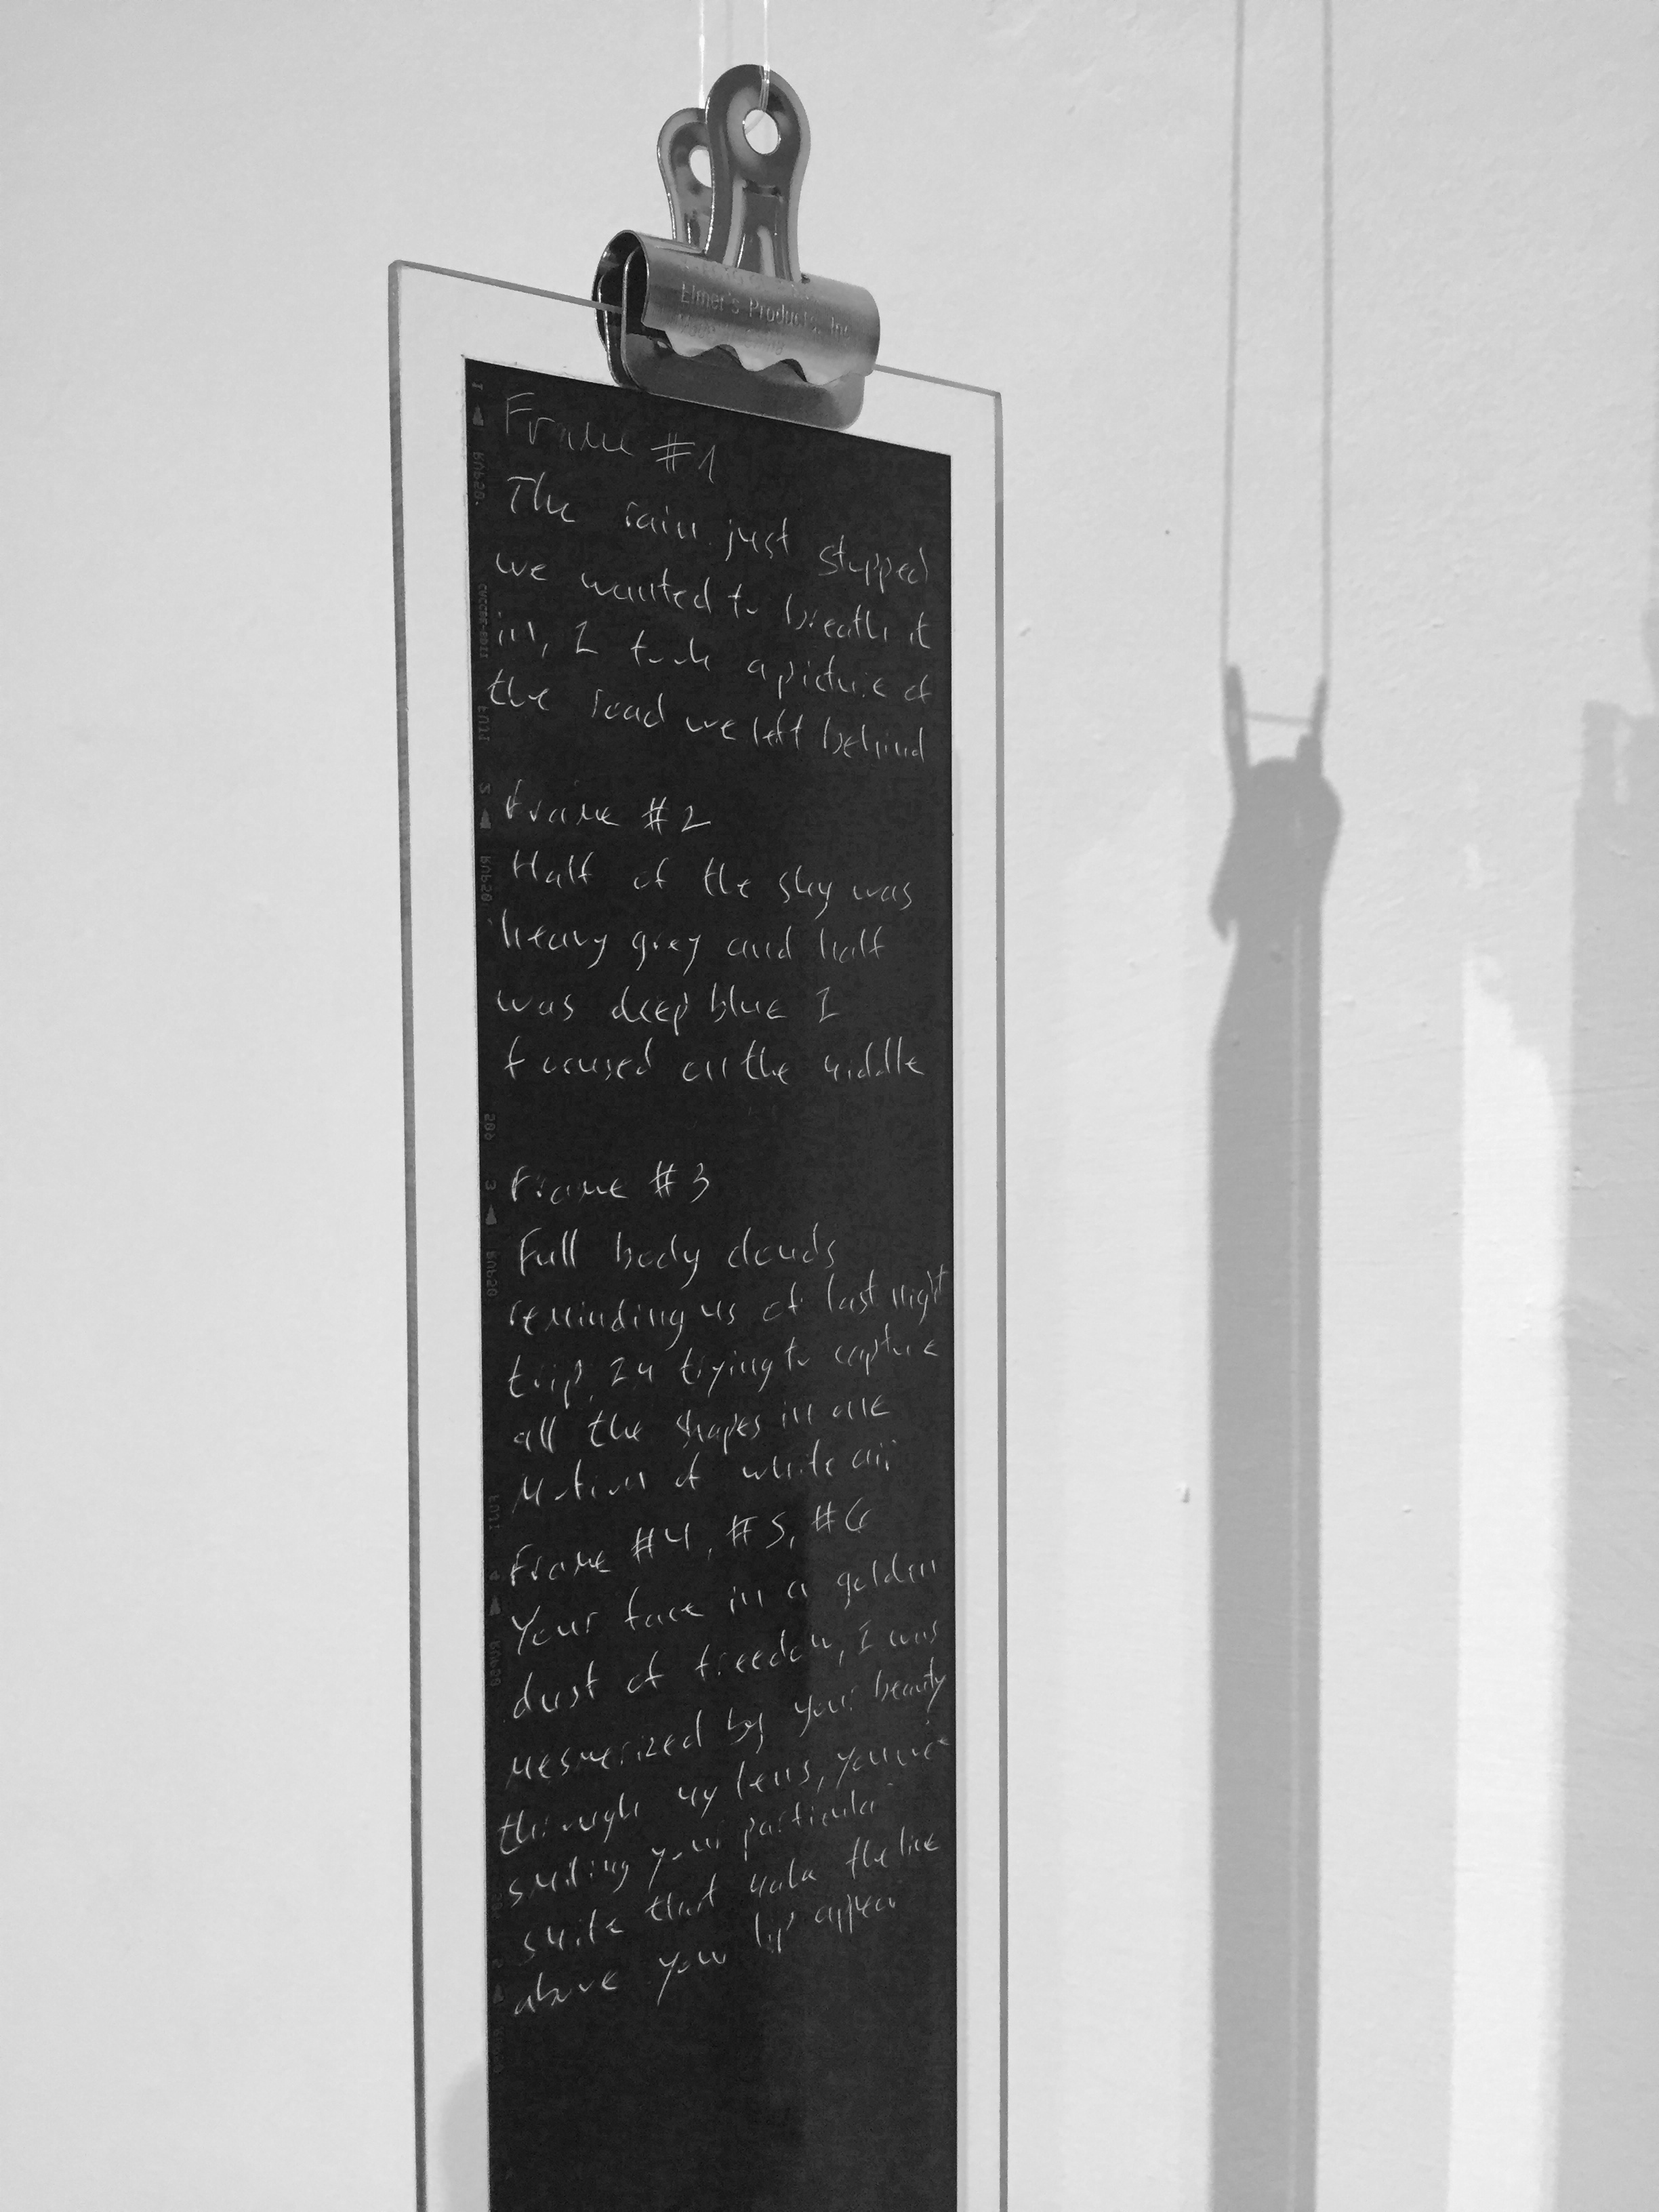 Elmer's Products, Inc
Frame #1
The rain just stopped
we wanted to breath it
in, I took a picture of
the road we left behind
Frame #2
Half of the sky was
heavy grey and half
was deep blue I
focused on the middle
Frame #3
Full body clouds
reminding us of last night
trip, trying to capture
all the shapes in one
Motion of white air
Frame #4, #5, #6
Your face in a golden
dust of freedom, I was
mesmerized by your beauty
through my lens, you were
smiling your particular
smile that make the line
above your lip appear
1
RVP50
FUJI
2
RVP50
3
RVP50
FUJI
4
RVP50